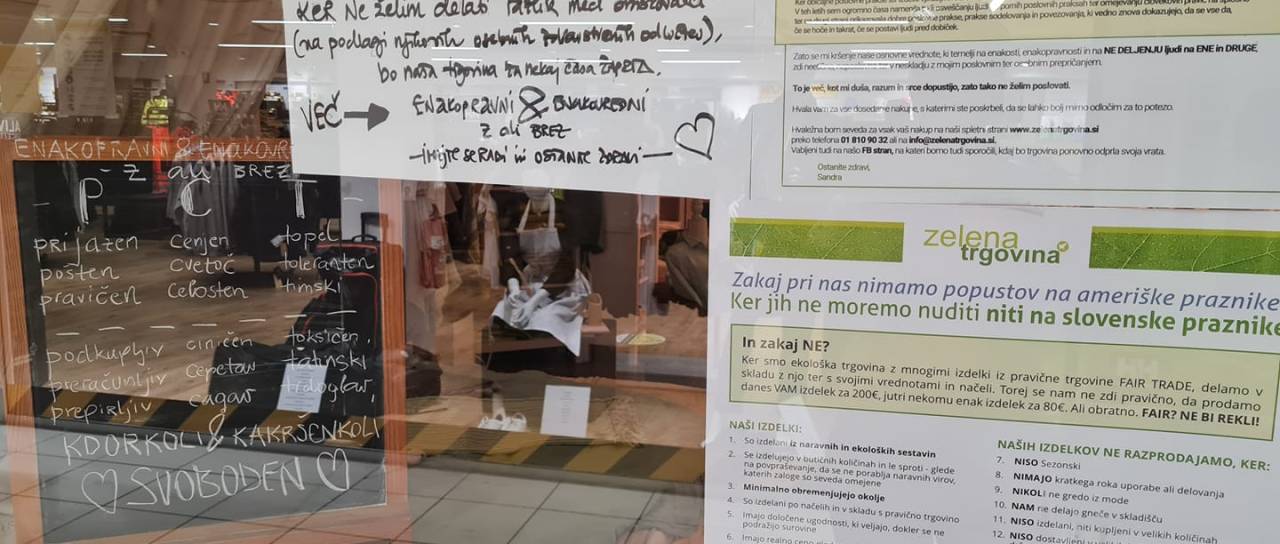 Ker Ne želim delati razlik med
(na podlagi njihovih osebnih zdravstvenih odločitev),
bo naša trgovina za nekaj časa ZAPRTA.
VEČ → ENAKOPRAVNI & ENAKOVREDNI
Z ali BREZ
– imejte se RADI in OSTANITE ZDRAVI –
ENAKOPRAVNI & ENAKOVR
- Z ali BREZ
P C T
prijazen cenjen topel
pošten cvetoč toleranten
pravičen celosten timski
podkupljiv ciničen toksičen,
preračunljiv cepetav
prepirljiv cagav trdoglav,
KDORKOLI & KAKRŠENKOLI
♡ SVOBODEN ♡
Zato se mi kršenje naše osnovne vrednote, ki temelji na enakosti, enakopravnosti in na NE DELJENJU ljudi na ENE in DRUGE,
zdi v neskladju z mojim poslovnim ter osebnim prepričanjem.
To je več, kot mi duša, razum in srce dopustijo, zato tako ne želim poslovati.
Hvala vam za vse dosedanje nakupe, s katerimi ste poskrbeli, da se lahko bolj mirno odločim za to potezo.
Hvaležna bom seveda za vsak vaš nakup na naši spletni strani www.zelenatrgovina.si
preko telefona 01 810 90 32 ali na info@zelenatrgovina.si.
Vabljeni tudi na našo FB stran, na kateri bomo tudi sporočili, kdaj bo trgovina ponovno odprla svoja vrata.
Ostanite zdravi,
Sandra
zelena
trgovina
Zakaj pri nas nimamo popustov na ameriške praznike
Ker jih ne moremo nuditi niti na slovenske praznike
In zakaj NE?
Ker smo ekološka trgovina z mnogimi izdelki iz pravične trgovine FAIR TRADE, delamo v
skladu z njo ter s svojimi vrednotami in načeli. Torej se nam ne zdi pravično, da prodamo
danes VAM izdelek za 200€, jutri nekomu enak izdelek za 80€. Ali obratno. FAIR? NE BI REKLI!
NAŠI IZDELKI:
1. So izdelani iz naravnih in ekoloških sestavin
2. Se izdelujejo v butičnih količinah in le sproti - glede
na povpraševanje, da se ne porablja naravnih virov,
katerih zaloge so seveda omejene
3. Minimalno obremenjujejo okolje
4. So izdelani po načelih in v skladu s pravično trgovino
5. Imajo določene ugodnosti, ki veljajo, dokler se ne
podražijo surovine
6. Imajo realno ceno
NAŠIH IZDELKOV NE RAZPRODAJAMO, KER:
7. NISO Sezonski
8. NIMAJO kratkega roka uporabe ali delovanja
9. NIKOLI ne gredo iz mode
10. NAM ne delajo gneče v skladišču
11. NISO izdelani, niti kupljeni v velikih količinah
12. NISO dostavljeni